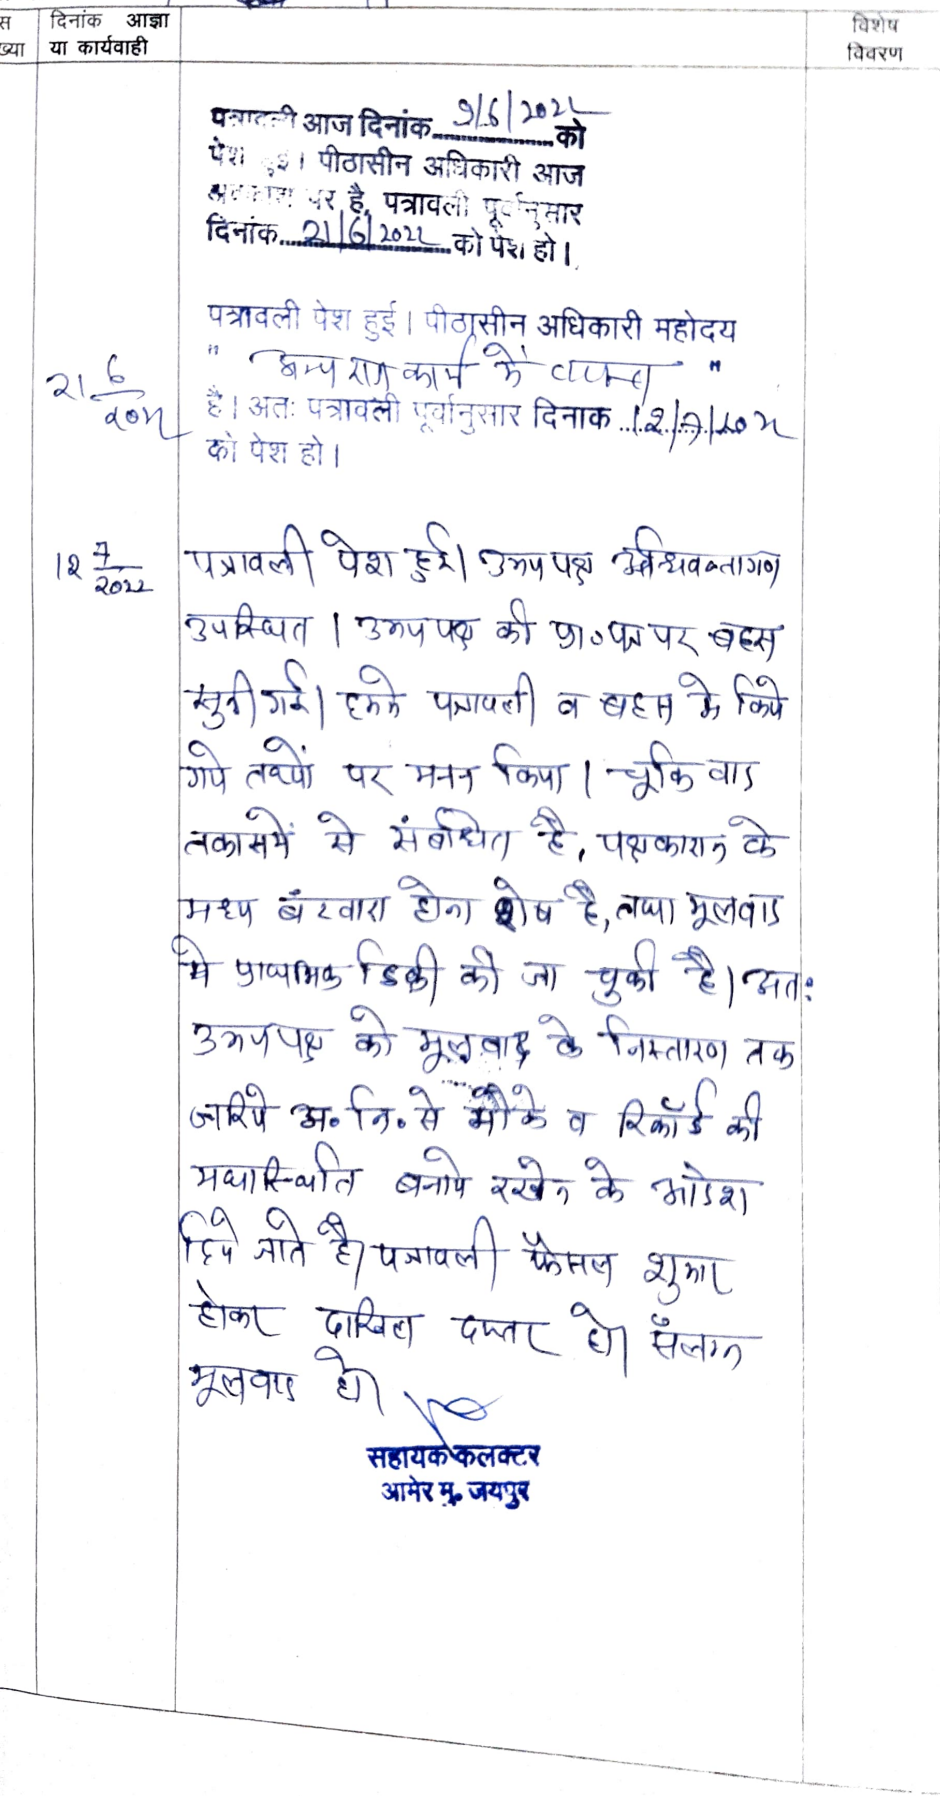 स
दिनांक आज्ञा
विशेष
ख्या
या कार्यवाही
विवरण
पत्रावली आज दिनांक 9/6/2022 को
पेश हुई। पीठासीन अधिकारी आज
अवकाश पर है, पत्रावली पूर्वानुसार
दिनांक 21/6/2022 को पेश हो।
पत्रावली पेश हुई। पीठासीन अधिकारी महोदय
" अन्य राज कार्य में व्यस्त "
21 6/2022
है। अतः पत्रावली पूर्वानुसार दिनाक 12/7/2022
को पेश हो।
12 7/2022
पत्रावली पेश हुई। उभयपक्ष अधिवक्तागण
उपस्थित। उभयपक्ष की प्रा०पत्र पर बहस
सुनी गई। हमने पत्रावली व बहस में किये
गये तथ्यों पर मनन किया। चूकि वाद
तकासमें से संबंधित है, पक्षकारान के
मध्य बंटवारा होना शेष है, तथा मूलवाद
में प्राथमिक डिक्री की जा चुकी है। अतः
उभयपक्ष को मूलवाद के निस्तारण तक
जरिये अ. नि. से मौके व रिकॉर्ड की
यथास्थिति बनाये रखने के आदेश
दिये जाते है। पत्रावली फैसल शुमार
होकर दाखिल दफ्तर हो। संलग्न
मूलवाद हो।
सहायक कलक्टर
आमेर मु. जयपुर